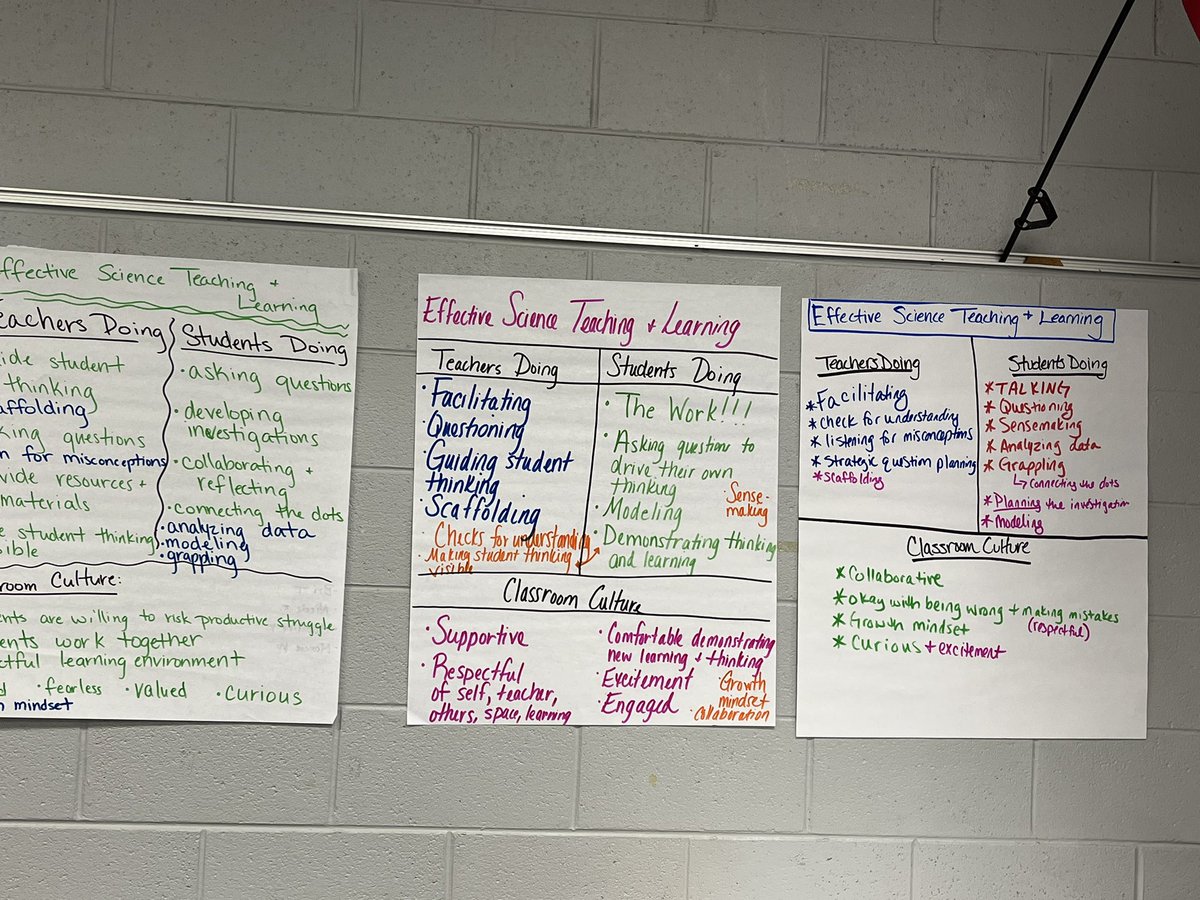 Effective Science Teaching +
Learning
Teachers Doing
student
thinking
questions
for misconceptions
resources +
materials
student thinking
Students Doing
• asking questions
• developing
investigations
• collaborating +
reflecting
• connecting the dots
• analyzing data
• modeling
• grappling
Culture:
are willing to risk productive struggle
work together
learning environment
• fearless • valued • curious
mindset
Effective Science Teaching + Learning
Teachers Doing
• Facilitating
• Questioning
• Guiding student
thinking
• Scaffolding
• Checks for understanding
• Making student thinking
visible
Students Doing
• The Work!!!
• Asking question to
drive their own
thinking
• Modeling
Sense-
making
• Demonstrating thinking
and learning
Classroom Culture
• Supportive
• Respectful
of self, teacher,
others, space, learning
• Comfortable demonstrating
new learning + thinking
• Excitement
• Engaged
• Growth
mindset
• collaboration
Effective Science Teaching + Learning
Teachers Doing
* Facilitating
* check for understanding
* listening for misconceptions
* Strategic question planning
* Scaffolding
Students Doing
* TALKING
* Questioning
* Sensemaking
* Analyzing data
* Grappling
↳ connecting the dots
* Planning the investigation
* Modeling
Classroom Culture
* Collaborative
* okay with being wrong + making mistakes
(respectful)
* Growth mindset
* Curious + excitement